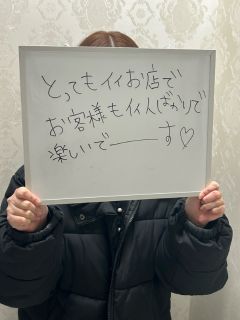 とってもイイお店で
お客様もイイ人ばかりで
楽しいで━━━す♡